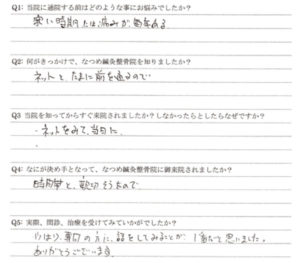 Q1: 当院に通院する前はどのような事にお悩みでしたか？
寒い時期には痛みが
Q2: 何がきっかけで、なつめ鍼灸整骨院を知りましたか？
ネットと、たまに前を通るので
Q3 当院を知ってからすぐ来院されましたか？しなかったとしたらなぜですか？
・ネットをみて、当日に
・
Q4: なにが決め手となって、なつめ鍼灸整骨院に御来院されましたか？
時間帯と、親切そうなので
Q5: 実際、問診、治療を受けてみていかがでしたか？
やはり、専門の方に、話をしてみることが、1番だと思いました。
ありがとうございます。